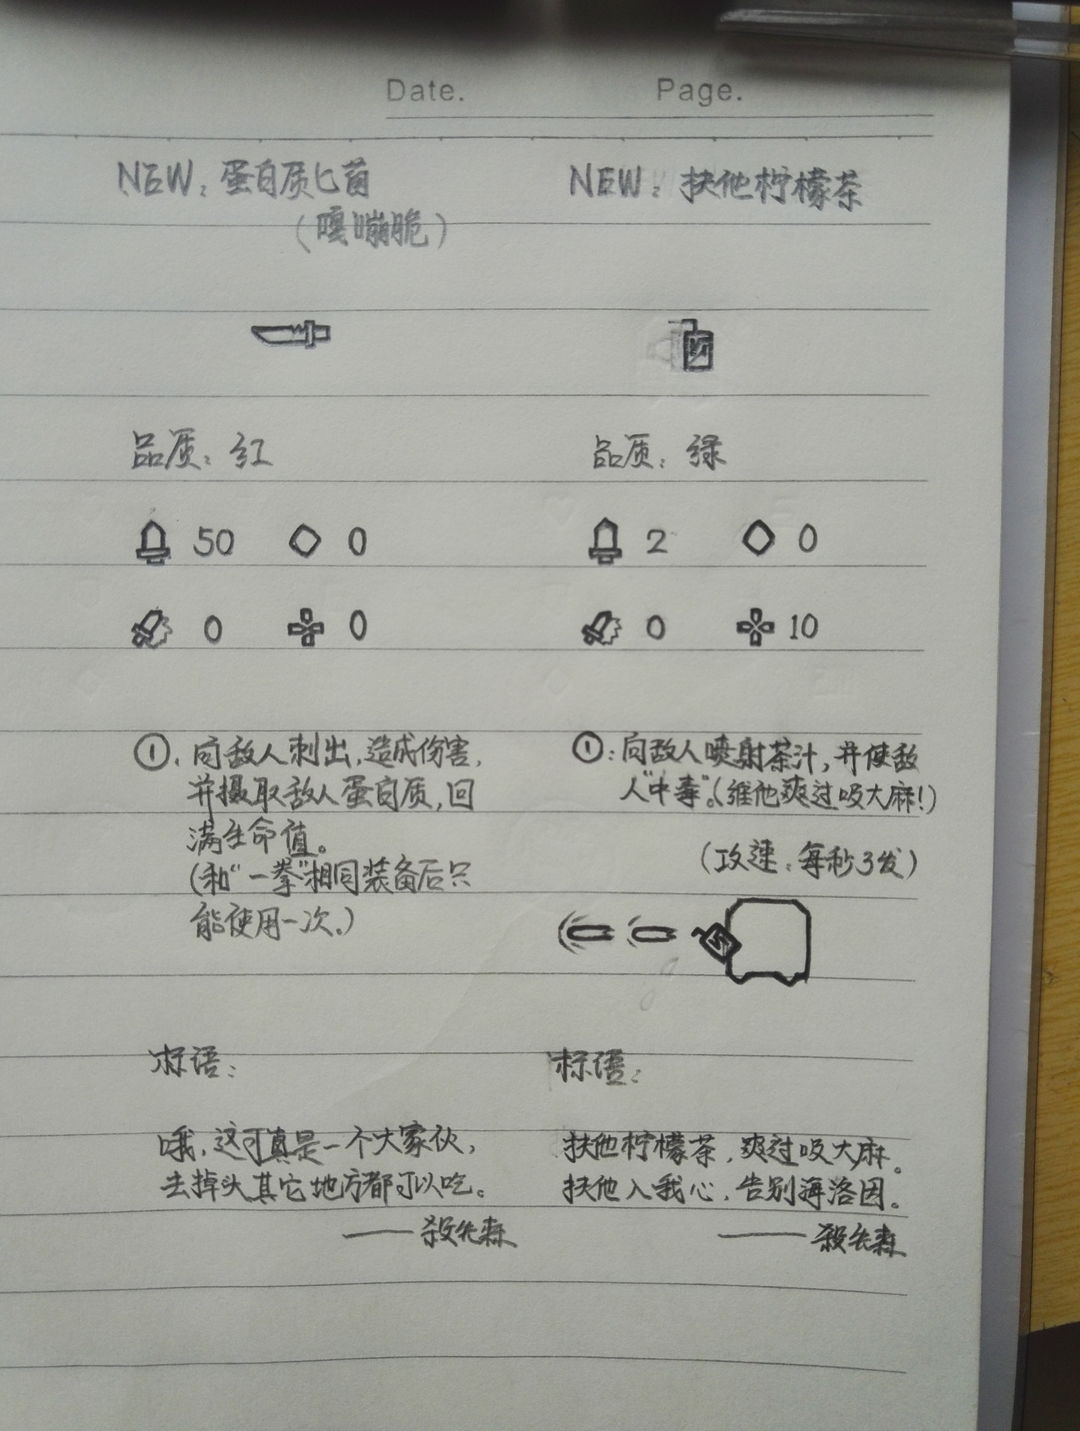 Date.
Page.
NEW：蛋白质匕首
（嘎嘣脆）
品质：红
50 0
0 0
①：向敌人刺出，造成伤害，
并摄取敌人蛋白质，回
满生命值。
（和“一拳”相同装备后只
能使用一次。）
标语：
哦，这可真是一个大家伙，
去掉头其它地方都可以吃。
——殺先森
NEW：扶他柠檬茶
品质：绿
2 0
0 10
①：向敌人喷射茶汁，并使敌
人“中毒”。（维他爽过吸大麻！）
（攻速：每秒3发）
标语：
扶他柠檬茶，爽过吸大麻。
扶他入我心，告别海洛因。
——殺先森